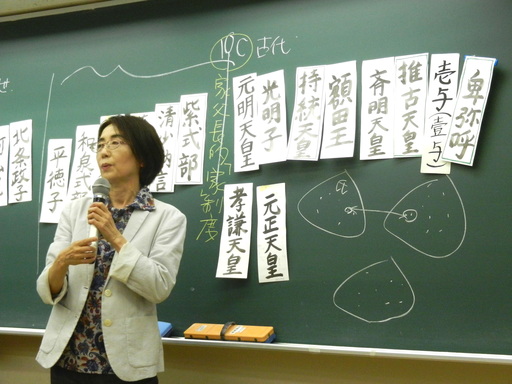 卑弥呼
壱与(壹与)
推古天皇
斉明天皇
額田王
持統天皇
光明子
元明天皇
元正天皇
孝謙天皇
10C 古代
家父長的家制度
紫式部
清少納言
和泉式部
平徳子
北条政子